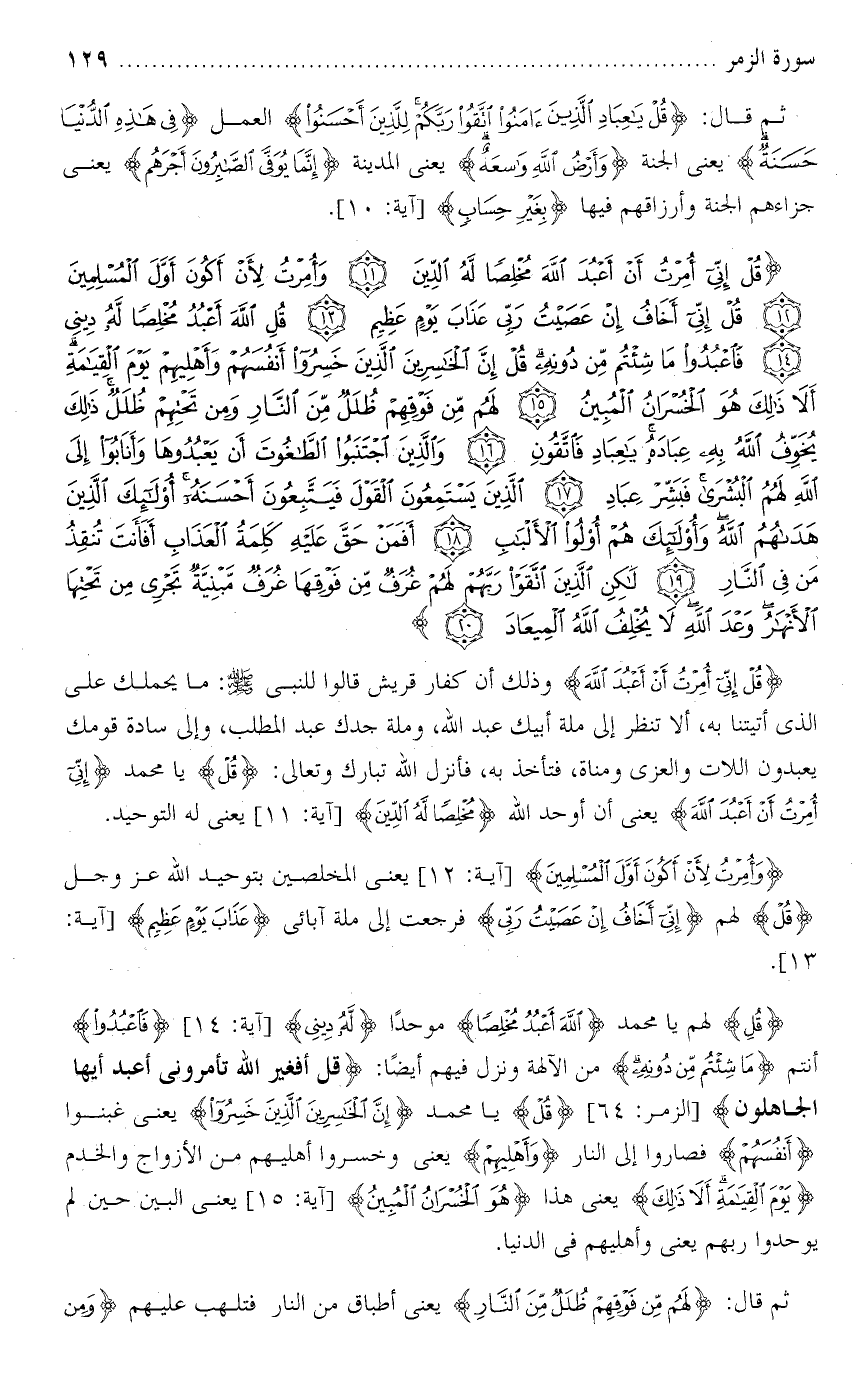 سورة الزمر ........................................................................ ١٢٩
ثم قال: ﴿قُلْ يَٰعِبَادِ ٱلَّذِينَ ءَامَنُوا۟ ٱتَّقُوا۟ رَبَّكُمْ ۚ لِلَّذِينَ أَحْسَنُوا۟﴾ العمل ﴿فِى هَٰذِهِ ٱلدُّنْيَا
حَسَنَةٌ ۗ﴾ يعنى الجنة ﴿وَأَرْضُ ٱللَّهِ وَٰسِعَةٌ ۗ﴾ يعنى المدينة ﴿إِنَّمَا يُوَفَّى ٱلصَّٰبِرُونَ أَجْرَهُم﴾ يعنى
جزاءهم الجنة وأرزاقهم فيها ﴿بِغَيْرِ حِسَابٍ﴾ [آية: ١٠].
﴿قُلْ إِنِّىٓ أُمِرْتُ أَنْ أَعْبُدَ ٱللَّهَ مُخْلِصًا لَّهُ ٱلدِّينَ ۝١١ وَأُمِرْتُ لِأَنْ أَكُونَ أَوَّلَ ٱلْمُسْلِمِينَ
۝١٢ قُلْ إِنِّىٓ أَخَافُ إِنْ عَصَيْتُ رَبِّى عَذَابَ يَوْمٍ عَظِيمٍ ۝١٣ قُلِ ٱللَّهَ أَعْبُدُ مُخْلِصًا لَّهُۥ دِينِى
۝١٤ فَٱعْبُدُوا۟ مَا شِئْتُم مِّن دُونِهِۦ ۗ قُلْ إِنَّ ٱلْخَٰسِرِينَ ٱلَّذِينَ خَسِرُوٓا۟ أَنفُسَهُمْ وَأَهْلِيهِمْ يَوْمَ ٱلْقِيَٰمَةِ ۗ
أَلَا ذَٰلِكَ هُوَ ٱلْخُسْرَانُ ٱلْمُبِينُ ۝١٥ لَهُم مِّن فَوْقِهِمْ ظُلَلٌ مِّنَ ٱلنَّارِ وَمِن تَحْتِهِمْ ظُلَلٌ ۚ ذَٰلِكَ
يُخَوِّفُ ٱللَّهُ بِهِۦ عِبَادَهُۥ ۚ يَٰعِبَادِ فَٱتَّقُونِ ۝١٦ وَٱلَّذِينَ ٱجْتَنَبُوا۟ ٱلطَّٰغُوتَ أَن يَعْبُدُوهَا وَأَنَابُوٓا۟ إِلَى
ٱللَّهِ لَهُمُ ٱلْبُشْرَىٰ ۚ فَبَشِّرْ عِبَادِ ۝١٧ ٱلَّذِينَ يَسْتَمِعُونَ ٱلْقَوْلَ فَيَتَّبِعُونَ أَحْسَنَهُۥٓ ۚ أُو۟لَٰٓئِكَ ٱلَّذِينَ
هَدَىٰهُمُ ٱللَّهُ ۖ وَأُو۟لَٰٓئِكَ هُمْ أُو۟لُوا۟ ٱلْأَلْبَٰبِ ۝١٨ أَفَمَنْ حَقَّ عَلَيْهِ كَلِمَةُ ٱلْعَذَابِ أَفَأَنتَ تُنقِذُ
مَن فِى ٱلنَّارِ ۝١٩ لَٰكِنِ ٱلَّذِينَ ٱتَّقَوْا۟ رَبَّهُمْ لَهُمْ غُرَفٌ مِّن فَوْقِهَا غُرَفٌ مَّبْنِيَّةٌ تَجْرِى مِن تَحْتِهَا
ٱلْأَنْهَٰرُ ۖ وَعْدَ ٱللَّهِ ۖ لَا يُخْلِفُ ٱللَّهُ ٱلْمِيعَادَ ۝٢٠﴾
﴿قُلْ إِنِّىٓ أُمِرْتُ أَنْ أَعْبُدَ ٱللَّهَ﴾ وذلك أن كفار قريش قالوا للنبى ﷺ: ما يحملك على
الذى أتيتنا به، ألا تنظر إلى ملة أبيك عبد الله، وملة جدك عبد المطلب، وإلى سادة قومك
يعبدون اللات والعزى ومناة، فتأخذ به، فأنزل الله تبارك وتعالى: ﴿قُلْ﴾ يا محمد ﴿إِنِّىٓ
أُمِرْتُ أَنْ أَعْبُدَ ٱللَّهَ﴾ يعنى أن أوحد الله ﴿مُخْلِصًا لَّهُ ٱلدِّينَ﴾ [آية: ١١] يعنى له التوحيد.
﴿وَأُمِرْتُ لِأَنْ أَكُونَ أَوَّلَ ٱلْمُسْلِمِينَ﴾ [آية: ١٢] يعنى المخلصين بتوحيد الله عز وجل
﴿قُلْ﴾ لهم ﴿إِنِّىٓ أَخَافُ إِنْ عَصَيْتُ رَبِّى﴾ فرجعت إلى ملة آبائى ﴿عَذَابَ يَوْمٍ عَظِيمٍ﴾ [آية:
١٣].
﴿قُلِ﴾ لهم يا محمد ﴿ٱللَّهَ أَعْبُدُ مُخْلِصًا﴾ موحدًا ﴿لَّهُۥ دِينِى﴾ [آية: ١٤] ﴿فَٱعْبُدُوا۟﴾
أنتم ﴿مَا شِئْتُم مِّن دُونِهِۦ ۗ﴾ من الآلهة ونزل فيهم أيضًا: ﴿قل أفغير الله تأمرونى أعبد أيها
الجاهلون﴾ [الزمر: ٦٤] ﴿قُلْ﴾ يا محمد ﴿إِنَّ ٱلْخَٰسِرِينَ ٱلَّذِينَ خَسِرُوٓا۟﴾ يعنى غبنوا
﴿أَنفُسَهُمْ﴾ فصاروا إلى النار ﴿وَأَهْلِيهِمْ﴾ يعنى وخسروا أهليهم من الأزواج والخدم
﴿يَوْمَ ٱلْقِيَٰمَةِ ۗ أَلَا ذَٰلِكَ﴾ يعنى هذا ﴿هُوَ ٱلْخُسْرَانُ ٱلْمُبِينُ﴾ [آية: ١٥] يعنى البين حين لم
يوحدوا ربهم يعنى وأهليهم فى الدنيا.
ثم قال: ﴿لَهُم مِّن فَوْقِهِمْ ظُلَلٌ مِّنَ ٱلنَّارِ﴾ يعنى أطباق من النار فتلهب عليهم ﴿وَمِن